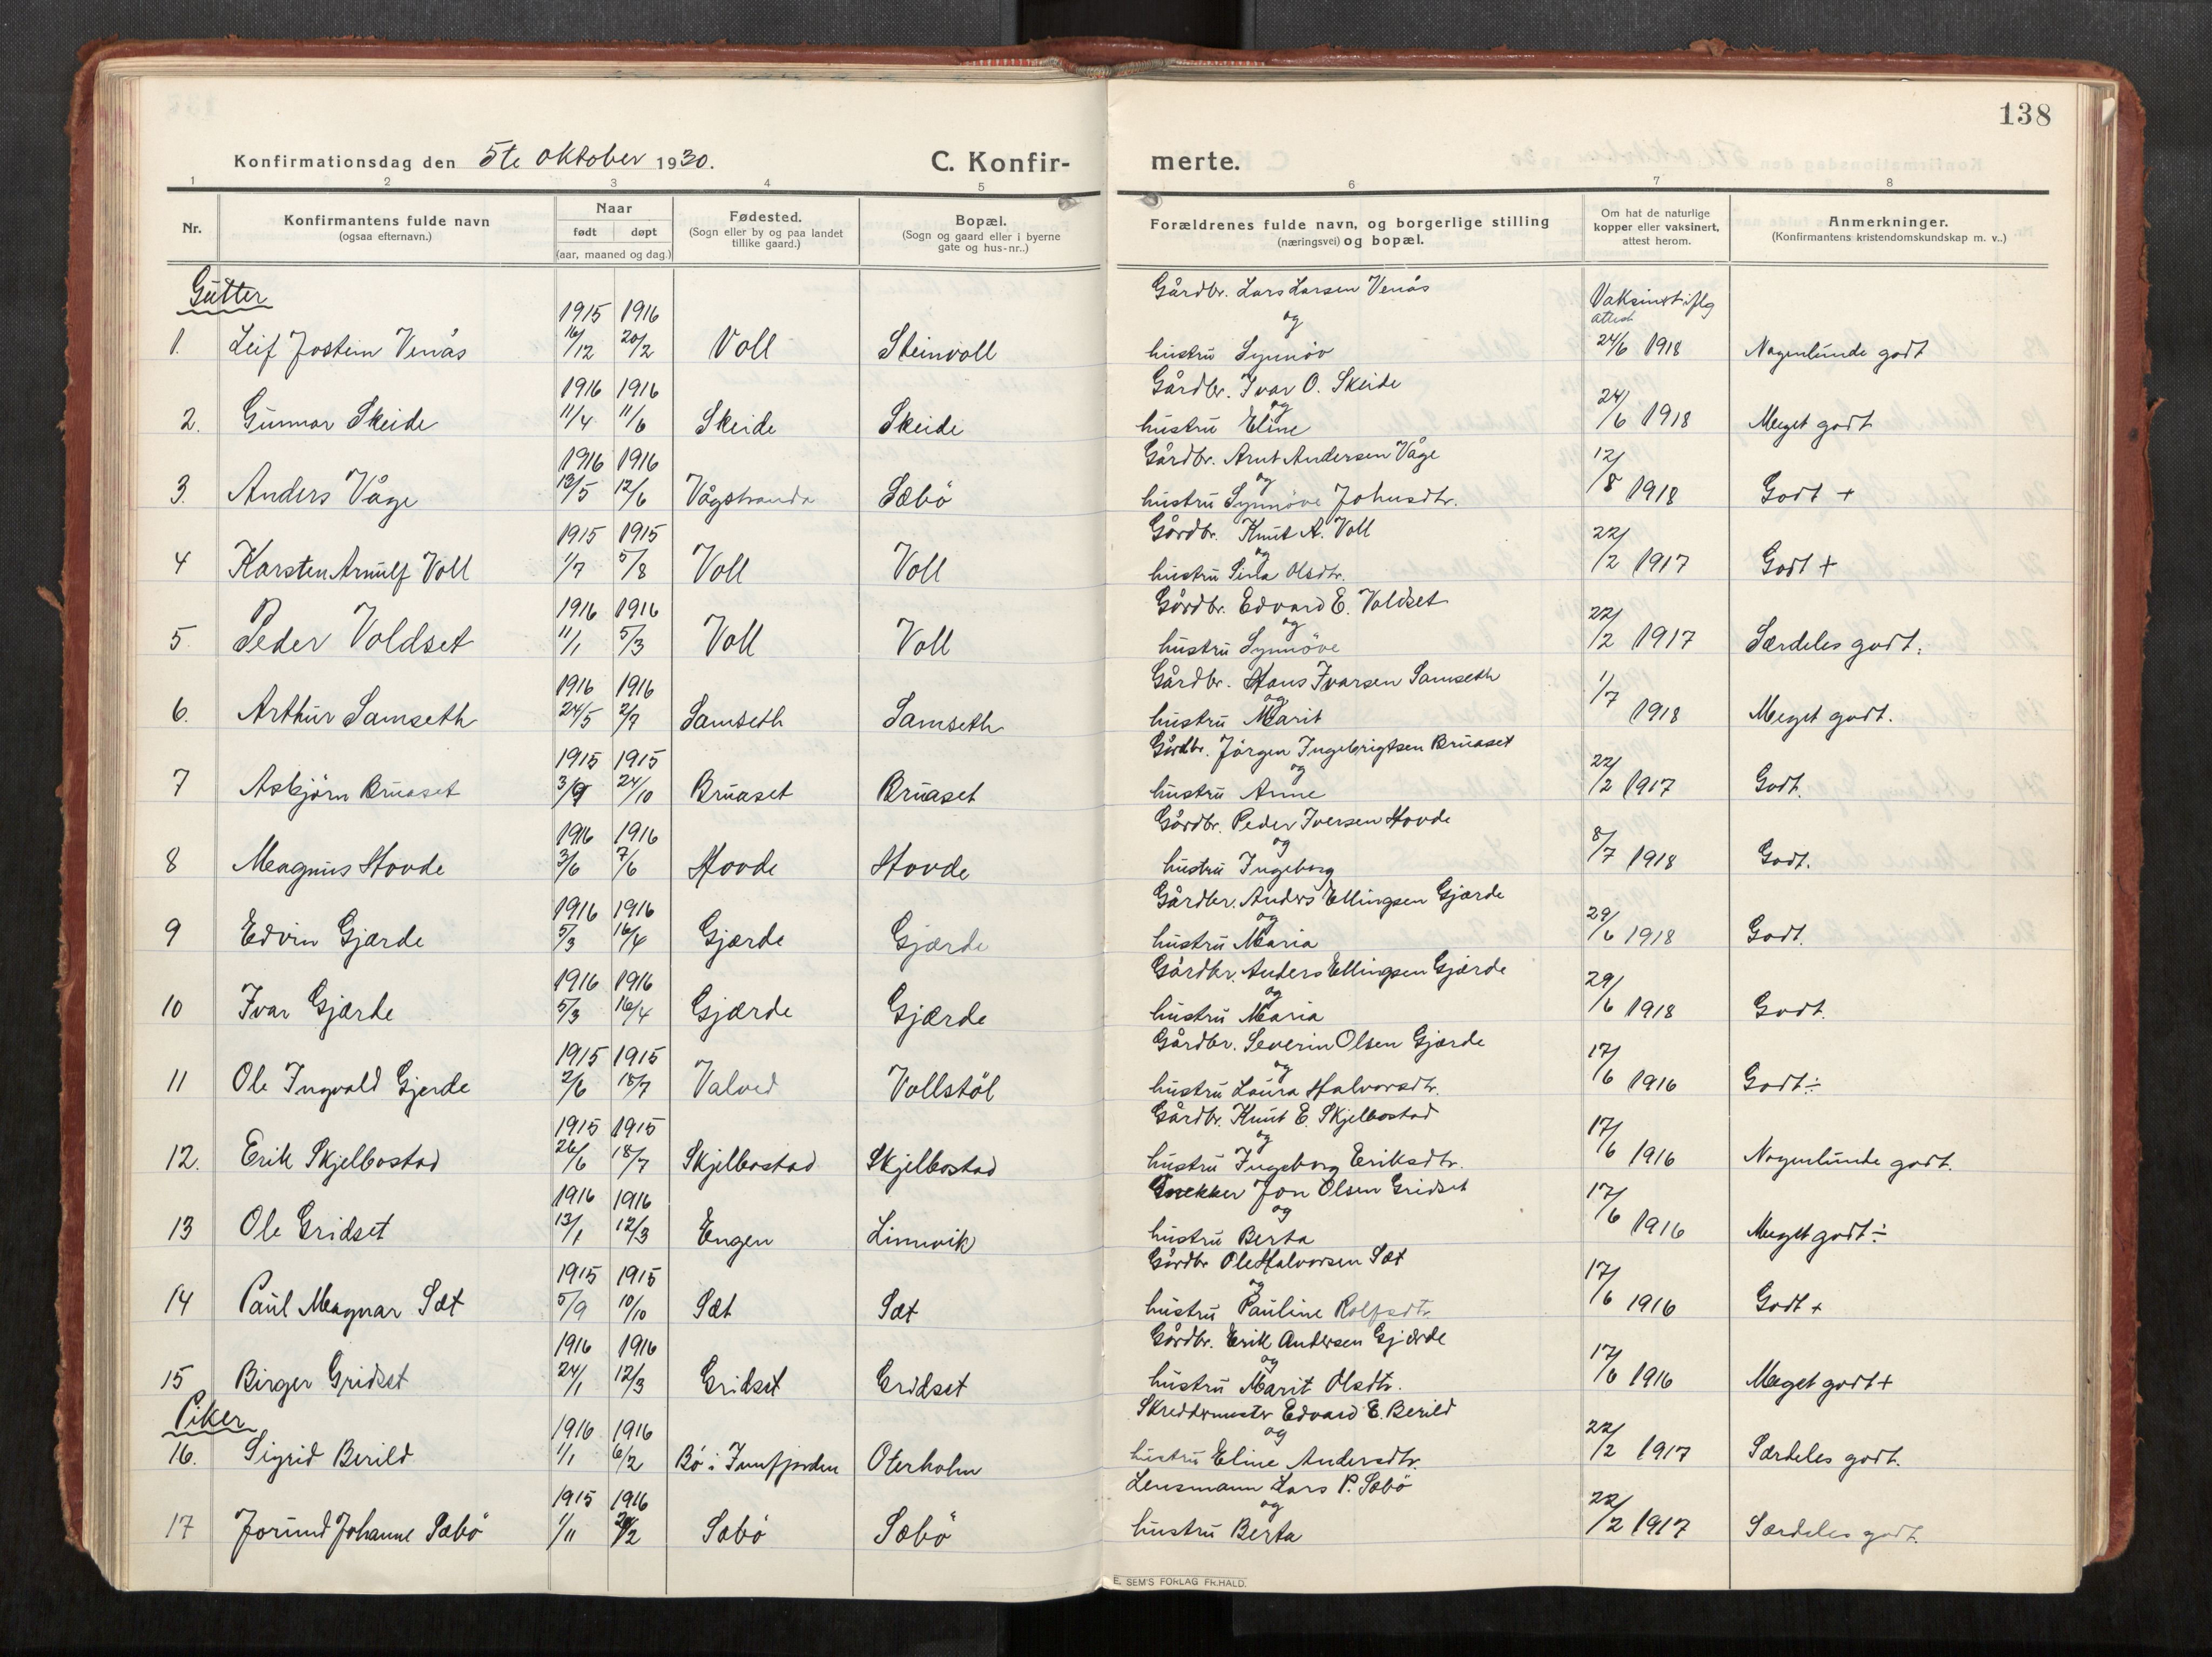 138
Konfirmationsdag den 5te oktober 1930. C. Konfir- merte.
1 2 3 4 5 6 7 8
Nr. Konfirmantens fulde navn (ogsaa efternavn.) Naar født døpt (aar, maaned og dag.) Fødested. (Sogn eller by og paa landet tillike gaard.) Bopæl. (Sogn og gaard eller i byerne gate og hus-nr..) Forældrenes fulde navn, og borgerlige stilling (næringsvei) og bopæl. Om hat de naturlige kopper eller vaksinert, attest herom. Anmerkninger. (Konfirmantens kristendomskundskap m. v..)
Gutter
1915 1916 Gårdbr. Lars Larsen Venås Vaksinert iflg attest
og
1. Leif Jostein Venås 16/12 20/2 Voll Steinvoll hustru Synnøv 24/6 1918 Nogenlunde godt
1916 1916 Gårdbr. Ivar O. Skeide
og
2. Gunnar Skeide 11/4 11/6 Skeide Skeide hustru Eline 24/6 1918 Meget godt
1916 1916 Gårdbr. Arnt Andersen Våge
og
3. Anders Våge 13/5 12/6 Vågstranda Sæbö hustru Synnöve Johnsdtr. 12/8 1918 Godt +
1915 1915 Gårdbr. Knut A. Voll
og
4 Karsten Arnulf Voll 1/7 5/8 Voll Voll hustru Sina Olsdtr. 22/2 1917 Godt +
1916 1916 Gårdbr. Edvard E. Voldset
og
5 Peder Voldset 11/1 5/3 Voll Voll hustru Synnöve 22/2 1917 Særdeles godt.
1916 1916 Gårdbr. Hans Ivarsen Samseth
og
6. Arthur Samseth 24/5 2/7 Samseth Samseth hustru Marit 1/7 1918 Meget godt.
1915 1915 Gårdbr. Jörgen Ingebrigtsen Bruaset
og
7 Asbjörn Bruaset 3/9 24/10 Bruaset Bruaset hustru Anne 22/2 1917 Godt.
1916 1916 Gårdbr. Peder Iversen Hovde
og
8 Magnus Hovde 3/6 7/6 Hovde Hovde hustru Ingeborg 8/7 1918 Godt.
1916 1916 Gårdbr. Anders Ellingsen Gjærde
og
9 Edvin Gjærde 5/3 16/4 Gjærde Gjærde hustru Maria 29/6 1918 Godt.
1916 1916 Gårdbr. Anders Ellingsen Gjærde
og
10 Ivar Gjærde 5/3 16/4 Gjærde Gjærde hustru Maria 29/6 1918 Godt.
1915 1915 Gårdbr. Severin Olsen Gjærde
og
11 Ole Ingvald Gjerde 2/6 18/7 Valved Vollstöl hustru Laura Halvorsdtr. 17/6 1916 Godt ÷
1915 1915 Gårdbr. Knut E. Skjelbostad
og
12. Erik Skjelbostad 26/6 18/7 Skjelbostad Skjelbostad hustru Ingeborg Eriksdtr. 17/6 1916 Nogenlunde godt.
1916 1916 Snekker Jon Olsen Gridset
og
13 Ole Gridset 13/1 12/3 Engen Linnvik hustru Berta 17/6 1916 Meget godt ÷
1915 1915 Gårdbr Ole Halvorsen Sæt
og
14 Paul Magnar Sæt 5/9 10/10 Sæt Sæt hustru Pauline Rolfsdtr 17/6 1916 Godt +
1916 1916 Gårdbr. Erik Andersen Gjærde
og
15 Birger Gridset 24/1 12/3 Gridset Gridset hustru Marit Olsdtr. 17/6 1916 Meget godt +
Piker
1916 1916 Skreddermester Edvard E. Berild
og
16. Sigrid Berild 1/1 6/2 Bö i Innfjorden Oterholm hustru Eline Andersdtr. 22/2 1917 Særdeles godt.
1915 1916 Lensmann Lars P. Sæbö
og
17 Jorund Johanne Sæbö 1/11 /2 Sæbö Sæbö hustru Berta 22/2 1917 Særdeles godt.
E. SEM'S FORLAG FR.HALD.